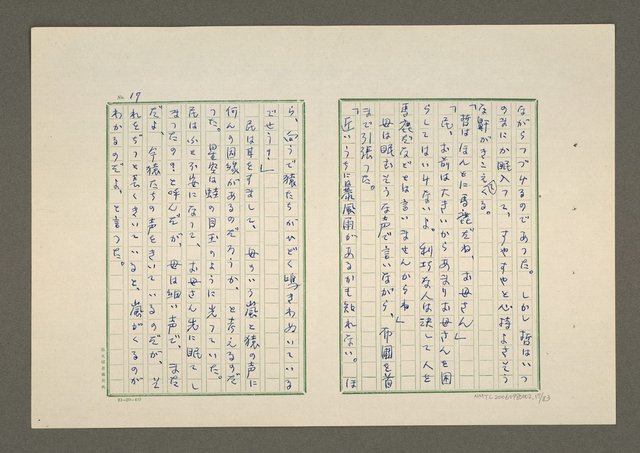 ながらつづけるのであった。しかし哲はいつ
のまにか眠入って、すやすやと心持よさそう
な鼾がきこえてくる。
「哲はほんとに馬鹿だね、お母さん」
「民、お前は大きいからあまりお母さんを困
らしてはいけないよ。利巧な人は決して人を
馬鹿だなどとは言いませんからね」
母は眠むそうな声で言いながら、布團を首
まで引張った。
「近いうちに暴風雨があるかも知れない。ほ
ら、向うで猿たちがひどく鳴きわめいている
でせう？」
民は耳をすまして、母のいう嵐と猿の声に
何んの因縁があるのだろうか、と考えるのだ
った。星空は蛙の目玉のように光っていた。
民はふと不安になって、お母さん先に眠てし
まったの？と呼んだが、母は細い声で、まだ
だよ、今猿たちの声をきいているのだが、そ
れをじっと長くきいていると、嵐がくるのが
わかるのだよ、と言った。
No. 17
10×20=200
NMTL20060980002.17/83